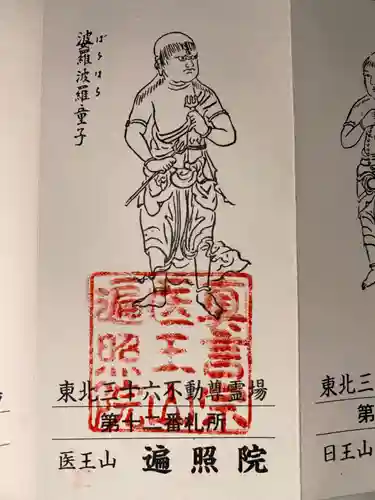 波羅波羅童子
ばらはら
東北三十六不動尊霊場
第十一番札所
医王山 遍照院
真言宗
医王山
遍照院
東北三
第
日王山